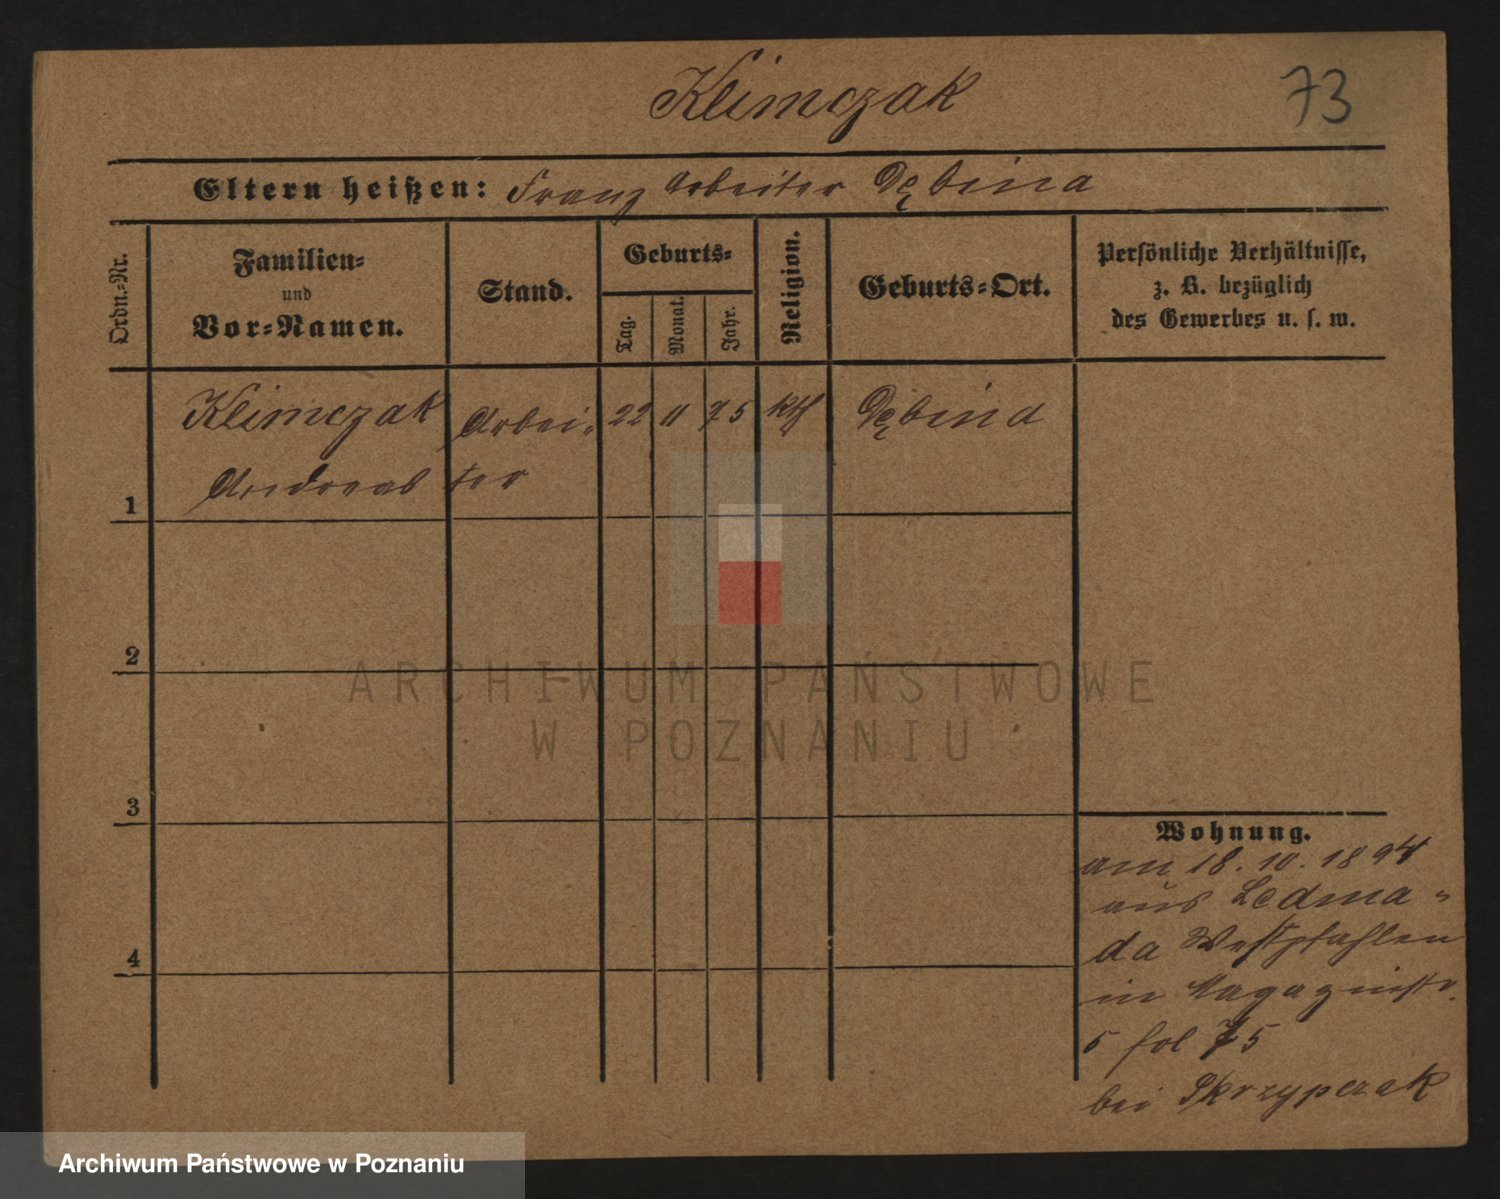 Klimczak 73
Eltern heißen: Franz Arbeiter Dębina
Ordn.-Nr.
Familien-
und
Vor-Namen.
Stand.
Geburts-
Tag.
Monat.
Jahr.
Religion.
Geburts-Ort.
Persönliche Verhältnisse,
z. B. bezüglich
des Gewerbes u. s. w.
Klimczak Arbei- 22 11 75 kth Dębina
1 Andreas ter
2
3
4
Wohnung.
am 18. 10. 1894
aus
da Westphalen
in Magazinstr.
5 fol 75
bei Skrzypczak
ARCHIWUM PAŃSTWOWE
W POZNANIU
Archiwum Państwowe w Poznaniu